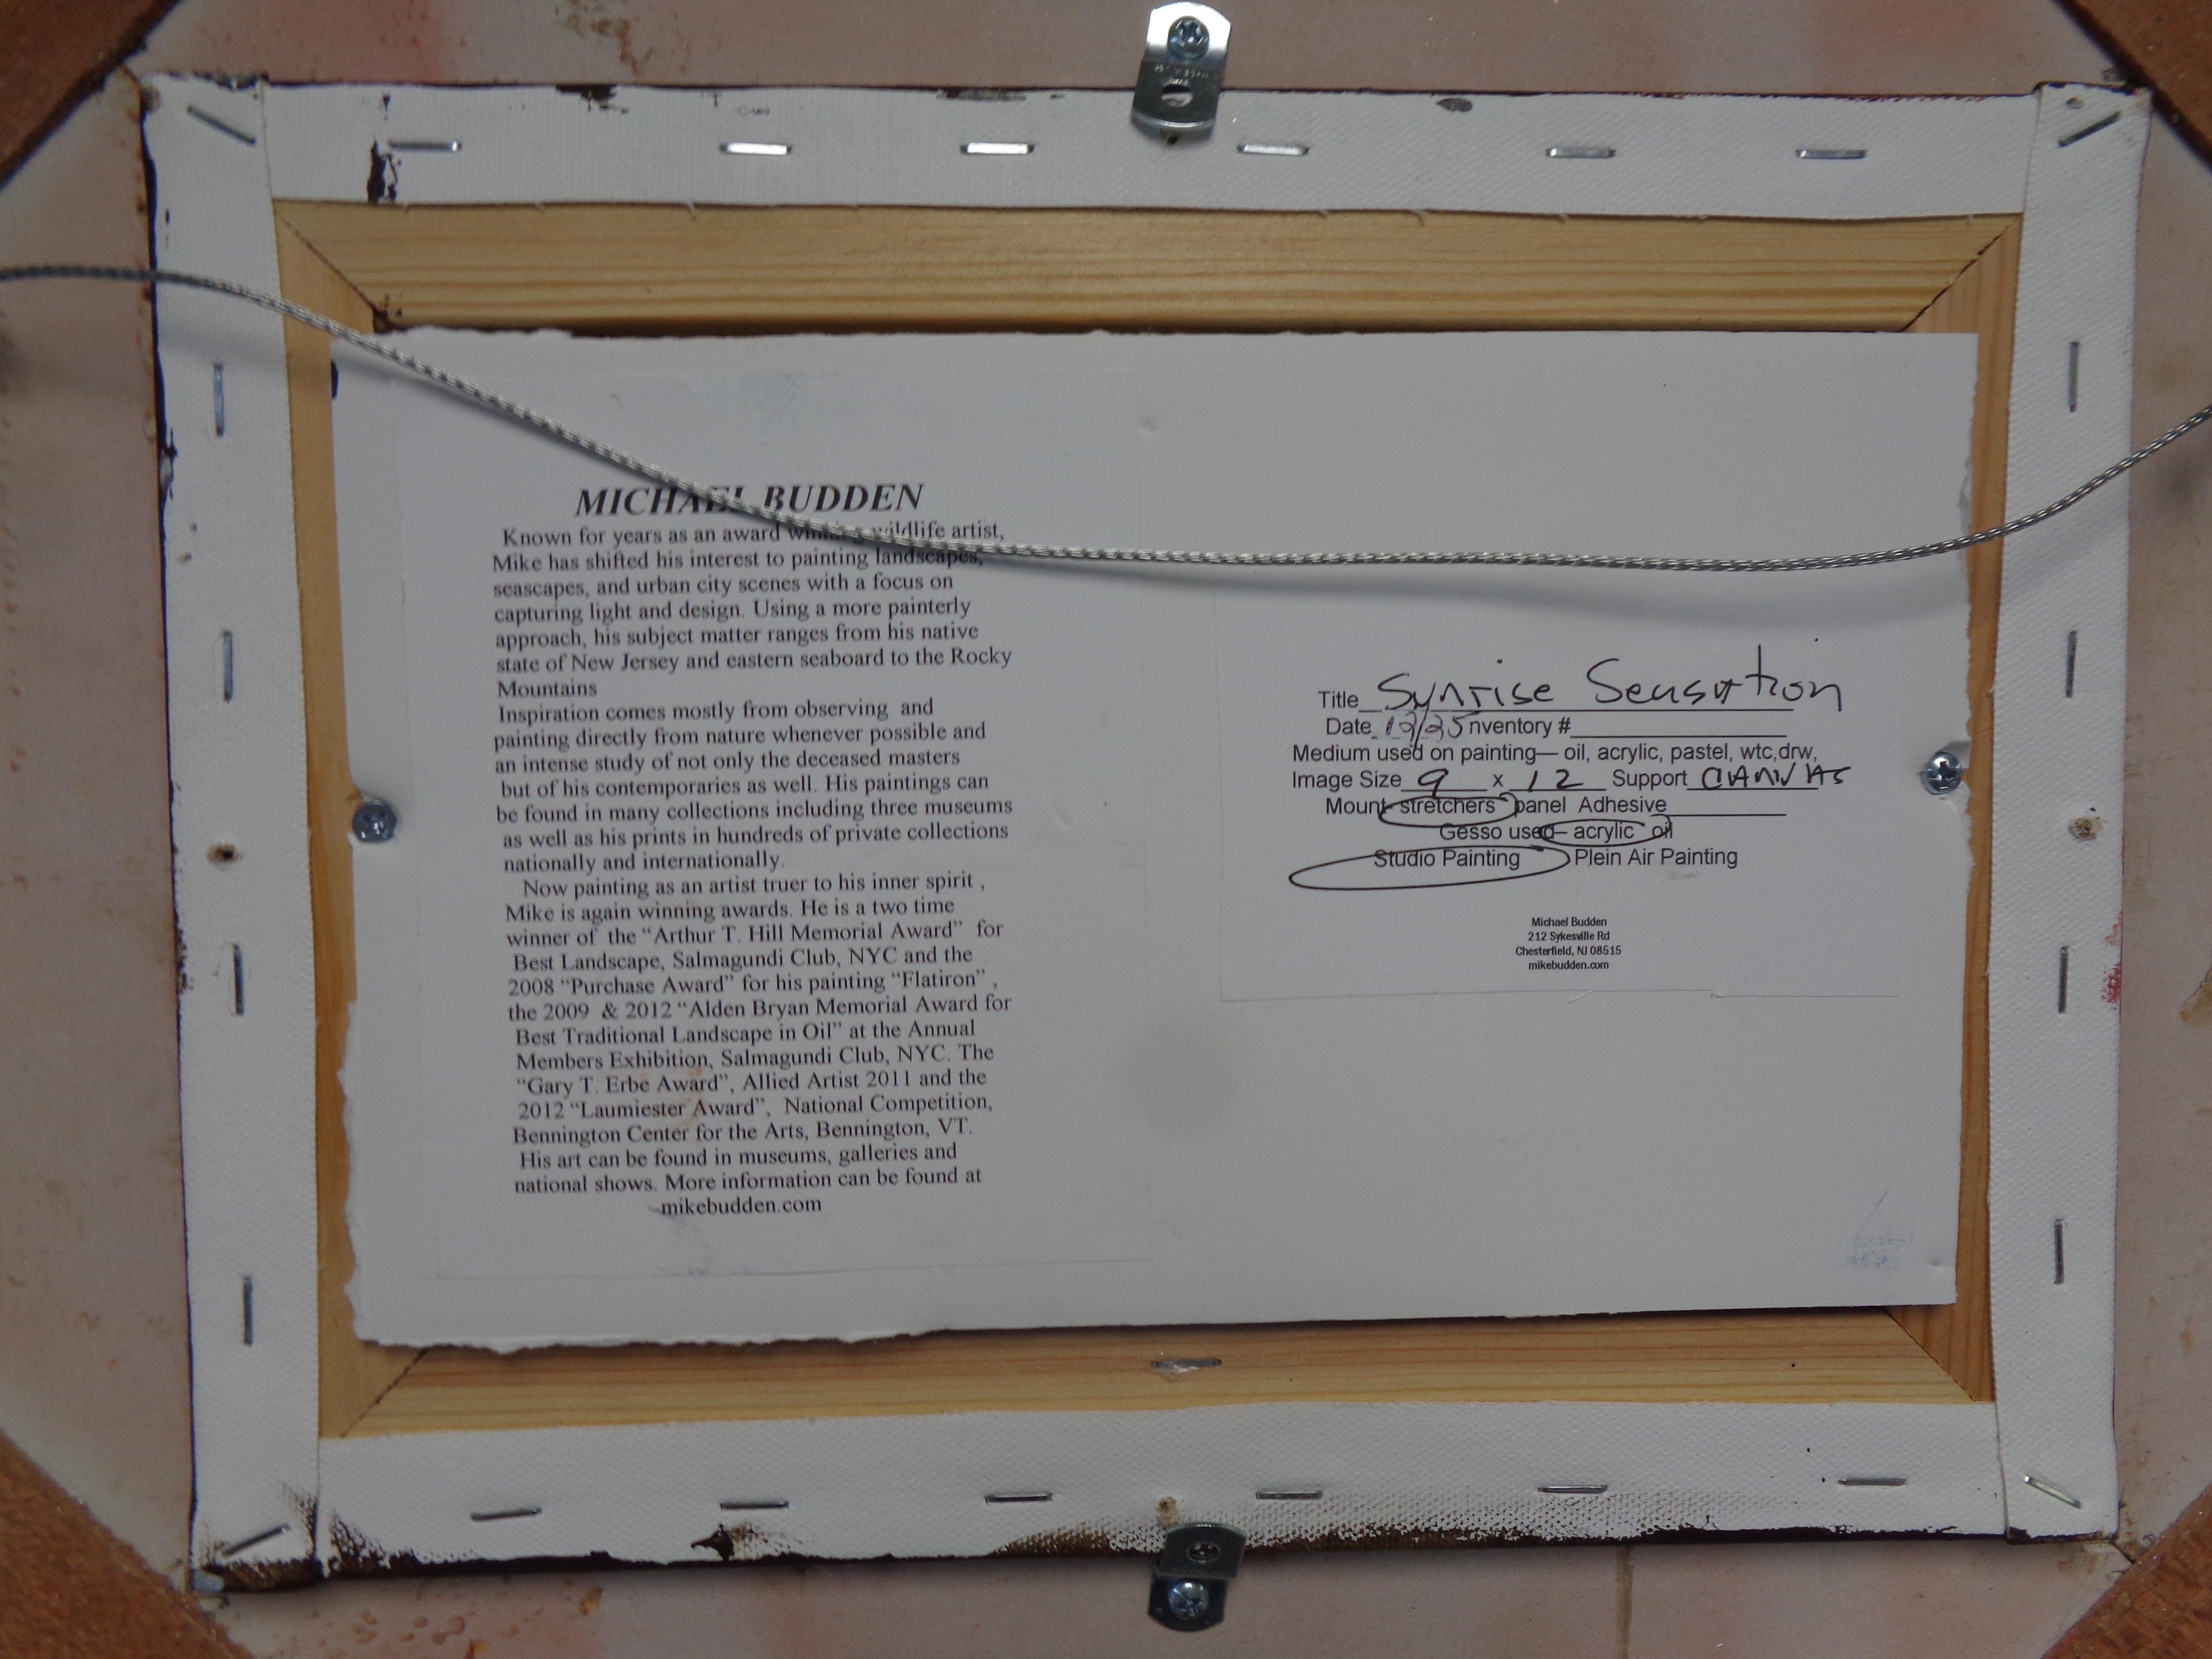 MICHAEL BUDDEN
Known for years as an award winning wildlife artist,
Mike has shifted his interest to painting landscapes,
seascapes, and urban city scenes with a focus on
capturing light and design. Using a more painterly
approach, his subject matter ranges from his native
state of New Jersey and eastern seaboard to the Rocky
Mountains
Inspiration comes mostly from observing and
painting directly from nature whenever possible and
an intense study of not only the deceased masters
but of his contemporaries as well. His paintings can
be found in many collections including three museums
as well as his prints in hundreds of private collections
nationally and internationally.
Now painting as an artist truer to his inner spirit ,
Mike is again winning awards. He is a two time
winner of the “Arthur T. Hill Memorial Award” for
Best Landscape, Salmagundi Club, NYC and the
2008 “Purchase Award” for his painting “Flatiron” ,
the 2009 & 2012 “Alden Bryan Memorial Award for
Best Traditional Landscape in Oil” at the Annual
Members Exhibition, Salmagundi Club, NYC. The
“Gary T. Erbe Award”, Allied Artist 2011 and the
2012 “Laumiester Award”, National Competition,
Bennington Center for the Arts, Bennington, VT.
His art can be found in museums, galleries and
national shows. More information can be found at
mikebudden.com
Title Sunrise Sensation
Date 12/25 nventory #
Medium used on painting— oil, acrylic, pastel, wtc,drw,
Image Size 9 x 12 Support CANVAS
Mount- stretchers panel Adhesive
Gesso used— acrylic oil
Studio Painting Plein Air Painting
Michael Budden
212 Sykesville Rd
Chesterfield, NJ 08515
mikebudden.com